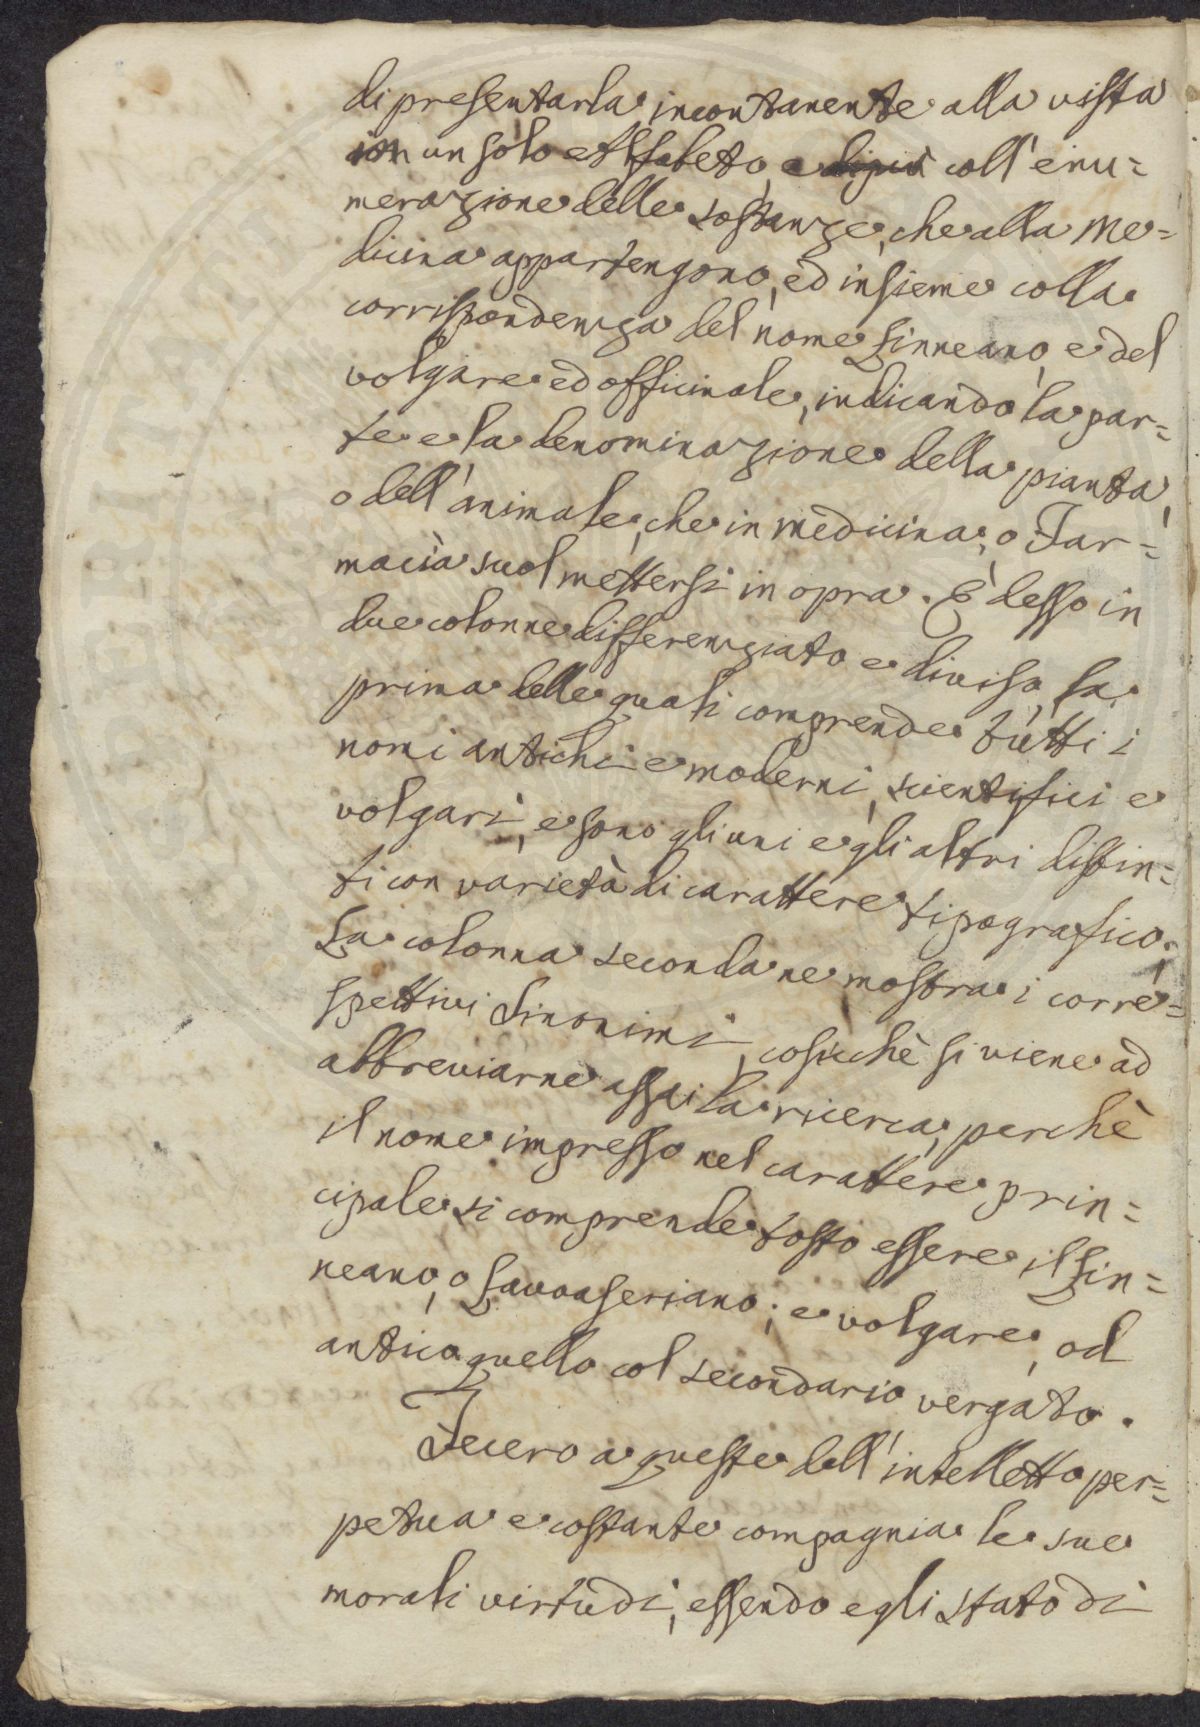 di presentarla incontanente alla vista
in un solo Alfabeto, e di più coll' enu=
merazione delle sostanze, che alla Me=
dicina appartengono, ed insieme colla
corrispondenza del nome Linneano, e del
volgare ed officinale, indicando la par=
te e la denominazione della pianta,
o dell' animale, che in medicina, o Far=
macia suol mettersi in opra. È desso in
due colonne differenziato e diviso, la
prima delle quali comprende tutti i
nomi antichi e moderni, scientifici e
volgari, e sono gli uni e gli altri distin=
ti con varietà di carattere tipografico;
La colonna seconda ne mostra i corre=
spettivi Sinonimi, cosicchè si viene ad
abbreviarne assai la ricerca, perchè
il nome impresso nel carattere prin=
cipale si comprende tosto essere il Lin=
neano, o Lavoaseriano; e volgare, od
antico quello col secondario vergato.
Fecero a queste dell' intelletto per=
petua e costante compagnia le sue
morali virtudi, essendo egli stato di